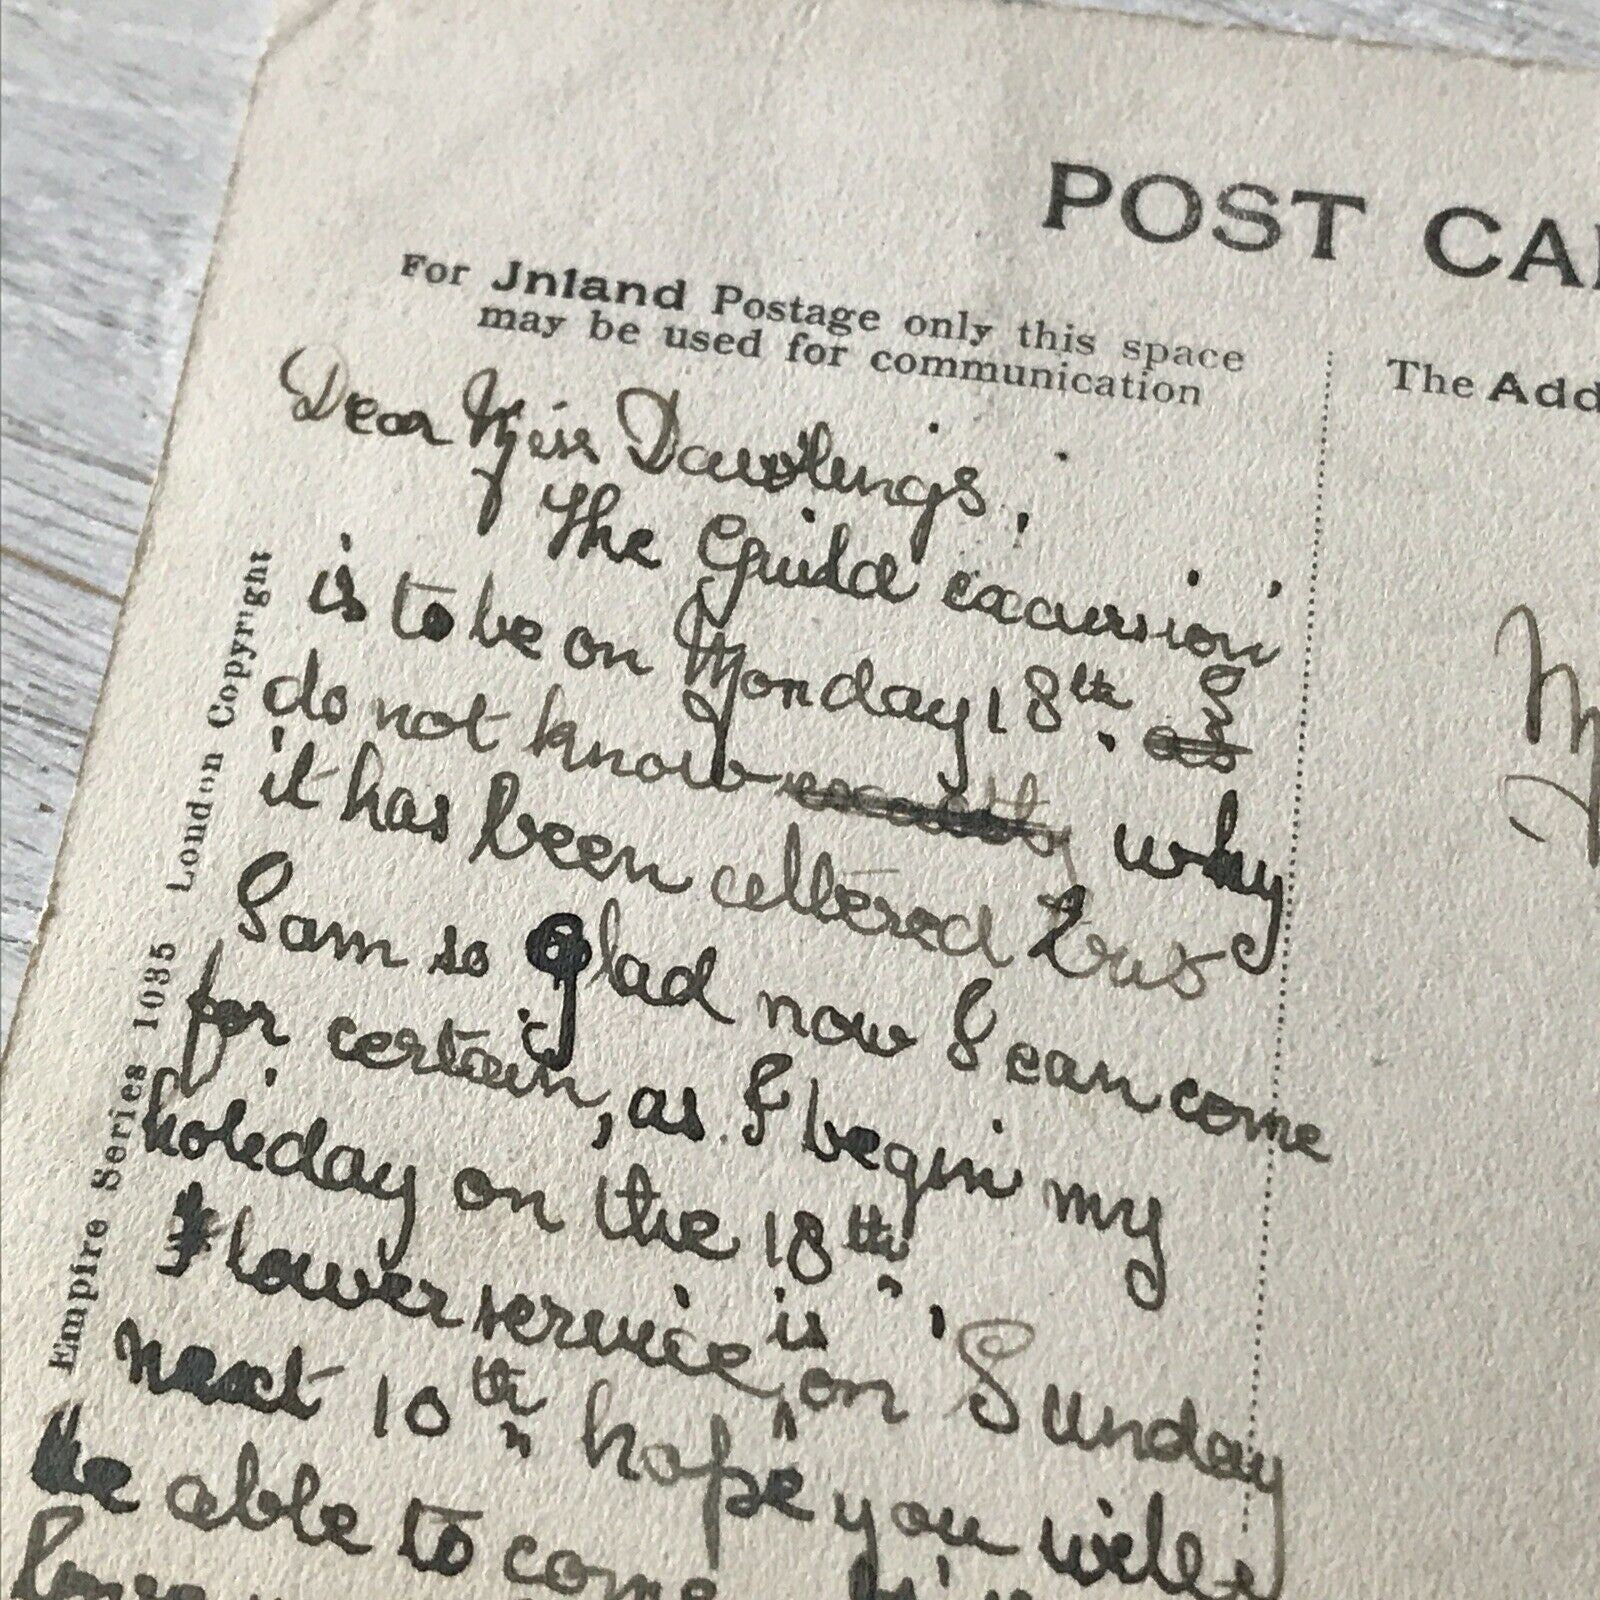 POST CA
For Inland Postage only this space
may be used for communication
The Add
London Copyright
Empire Series 1035
Dear Miss Dawlings,
The Guild excursion
is to be on Monday 18th. as I
do not know exactly why
it has been altered but
I am so glad now I can come
for certain, as I begin my
holiday on the 18th.
Flower service is on Sunday
next 10th hope you will
be able to come